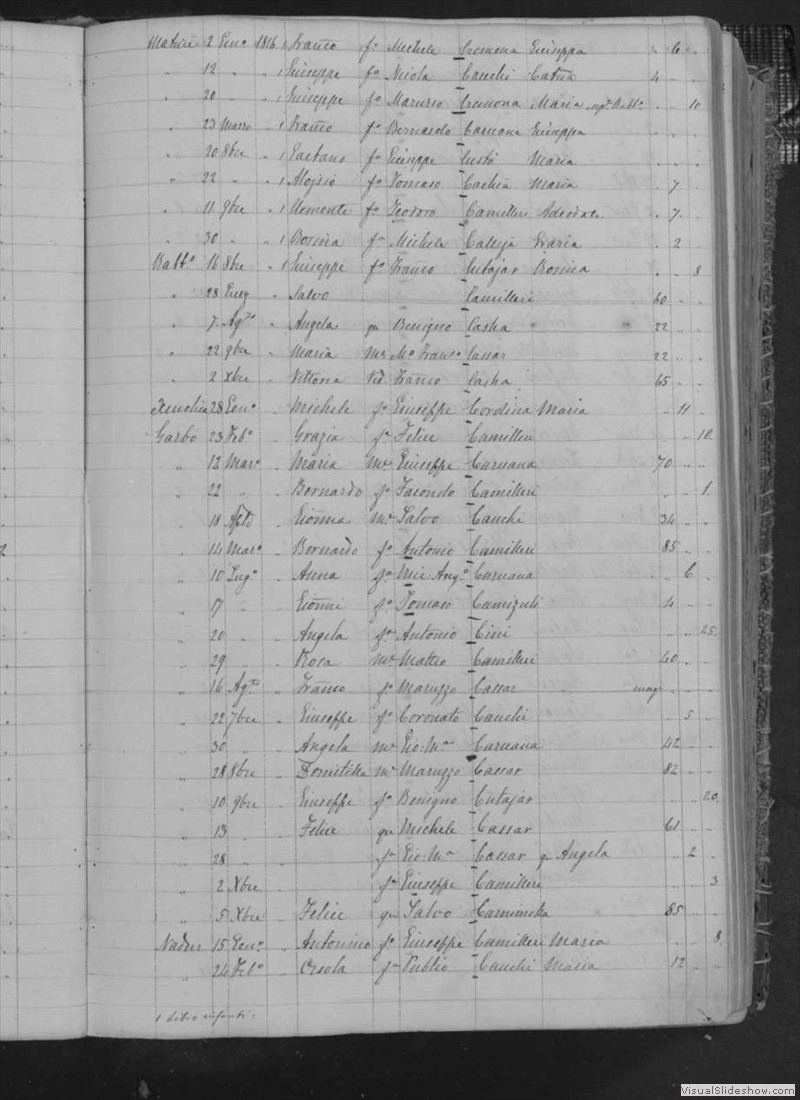 Matrice 2 Gen° 1816. 1 Franco f° Michele Cremona Giuseppa " 6 "
" 12 " " 1 Giuseppe f° Nicola Cauchi Catna 4 " "
" 20 " " 1 Giuseppe f° Maruzzo Cremona Maria Rabbo " " 10
" 23 Marzo " 1 Franco f° Bernardo Caruana Giuseppa
" 20 8bre " 1 Gaetano f° Giuseppe Custò Maria
" 22 " " 1 Aloysio f° Tomaso Cachia Maria " 7 "
" 11 9bre " 1 Clemente f° Teodoro Camilleri Adeodata " 7 "
" 30 " " 1 Rosina fa Michele Calleja Grazia " 2 "
Rabb° 16 8bre " 1 Giuseppe f° Franco Cutajar Rosina " " 8
" 28 " Salvo Camilleri 60 " "
" 7 Ag.to " Angela qu Benigno Casha " 22 " "
" 22 9bre " Maria Mr Mo Franco Cassar 22 " "
" 2 Xbre " Vittoria Vid. Franco Casha 65 " "
Xeuchia 28 Gen° " Michele f° Giuseppe Cordina Maria " 11 "
Garbo 23 Feb° " Grazia fa Felice Camilleri " " 10
" 12 Mar° " Maria Mr Giuseppe Caruana 70 " "
" 22 " " Bernardo f° Facondo Camilleri " " 1
" 18 Aple " Gionna Mr Salvo Cauchi 34 " "
" 14 Mar° " Bernardo f° Antonio Camilleri 85 " "
" 10 Lug° " Anna fa Mic: Ang.° Caruana " 6 "
" 17 " " Gionni f° Tomaso Camizuli 4 " "
" 20 " " Angela fa Antonio Cini " " 25
" 29 " " Rosa Mr Matteo Camilleri 40 " "
" 16 Ag.to " Franco f° Maruzzo Cassar mag. " "
" 22 7bre " Giuseppe f° Coronato Cauchi " 5 "
" 30 " " Angela Mr Gio: Ma Caruana 42 " "
" 28 8bre " Domitilla Mr Maruzzo Cassar 82 " "
" 10 9bre " Giuseppe f° Benigno Cutajar " " 20
" 13 " " Felice qu Michele Cassar 61 " "
" 28 " " fa Gio: Ma Cassar q Angela " 2 "
" 2 Xbre " fa Giuseppe Camilleri " " 3
" 5 Xbre " Felice qu Salvo 85 " "
Nadur 15 Gen° " Antonino f° Giuseppe Camilleri Maria " " 8
" 24 Feb° " Orsola fa Publio Cauchi Maria 12 " "
1 Libro infanti:
2
VisualSlideshow.com